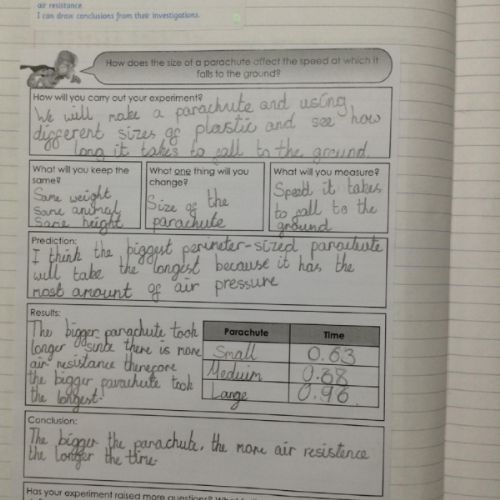 air resistance
I can draw conclusions from their investigations.
How does the size of a parachute affect the speed at which it
falls to the ground?
How will you carry out your experiment?
We will make a parachute and using
different sizes of plastic and see how
long it takes to fall to the ground.
What will you keep the
same?
Same weight
Same animal
Same height
What one thing will you
change?
Size of the
parachute
What will you measure?
Speed it takes
to fall to the
ground
Prediction:
I think the biggest perimeter-sized parachute
will take the longest because it has the
most amount of air pressure
Results:
The bigger parachute took
longer since there is more
air resistance therefore
the bigger parachute took
the longest.
Parachute Time
Small 0.63
Meduim 0.88
Large 0.96
Conclusion:
The bigger the parachute, the more air resistence
the longer the time.
Has your experiment raised more questions?